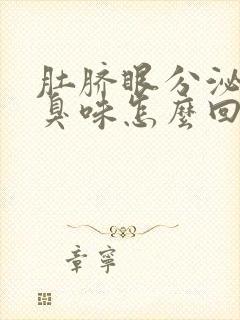 肚脐眼分泌
臭味怎麼回
章寧